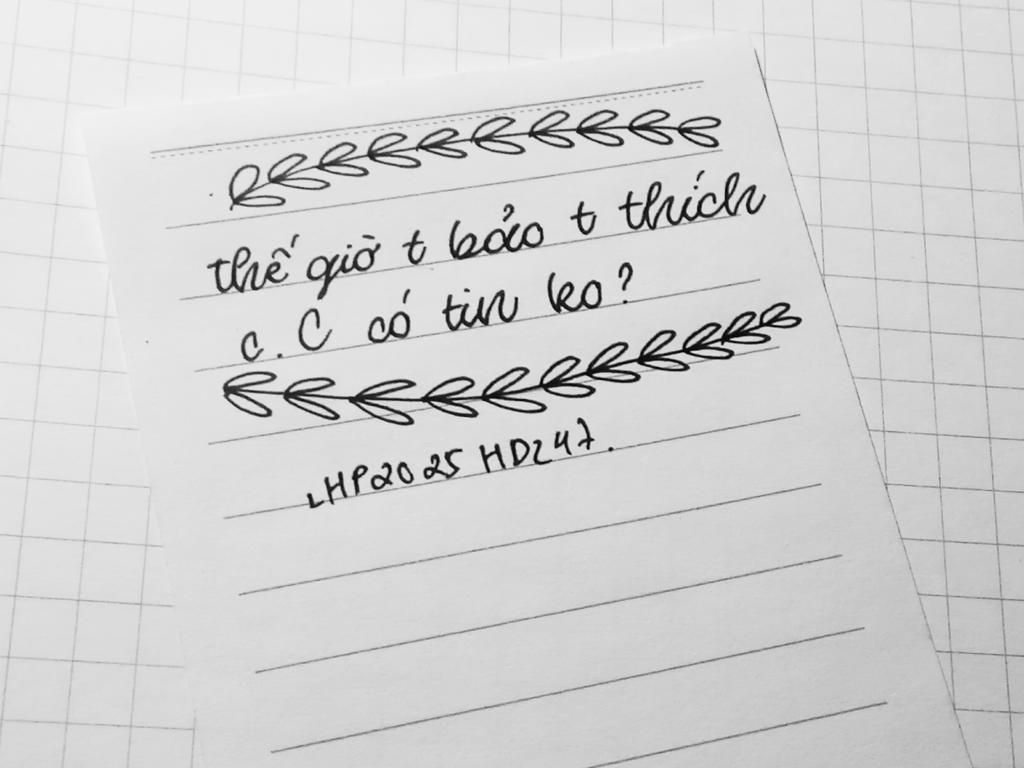 thế giờ t bảo t thích
c. C có tin ko?
LHP2025 HDL47.